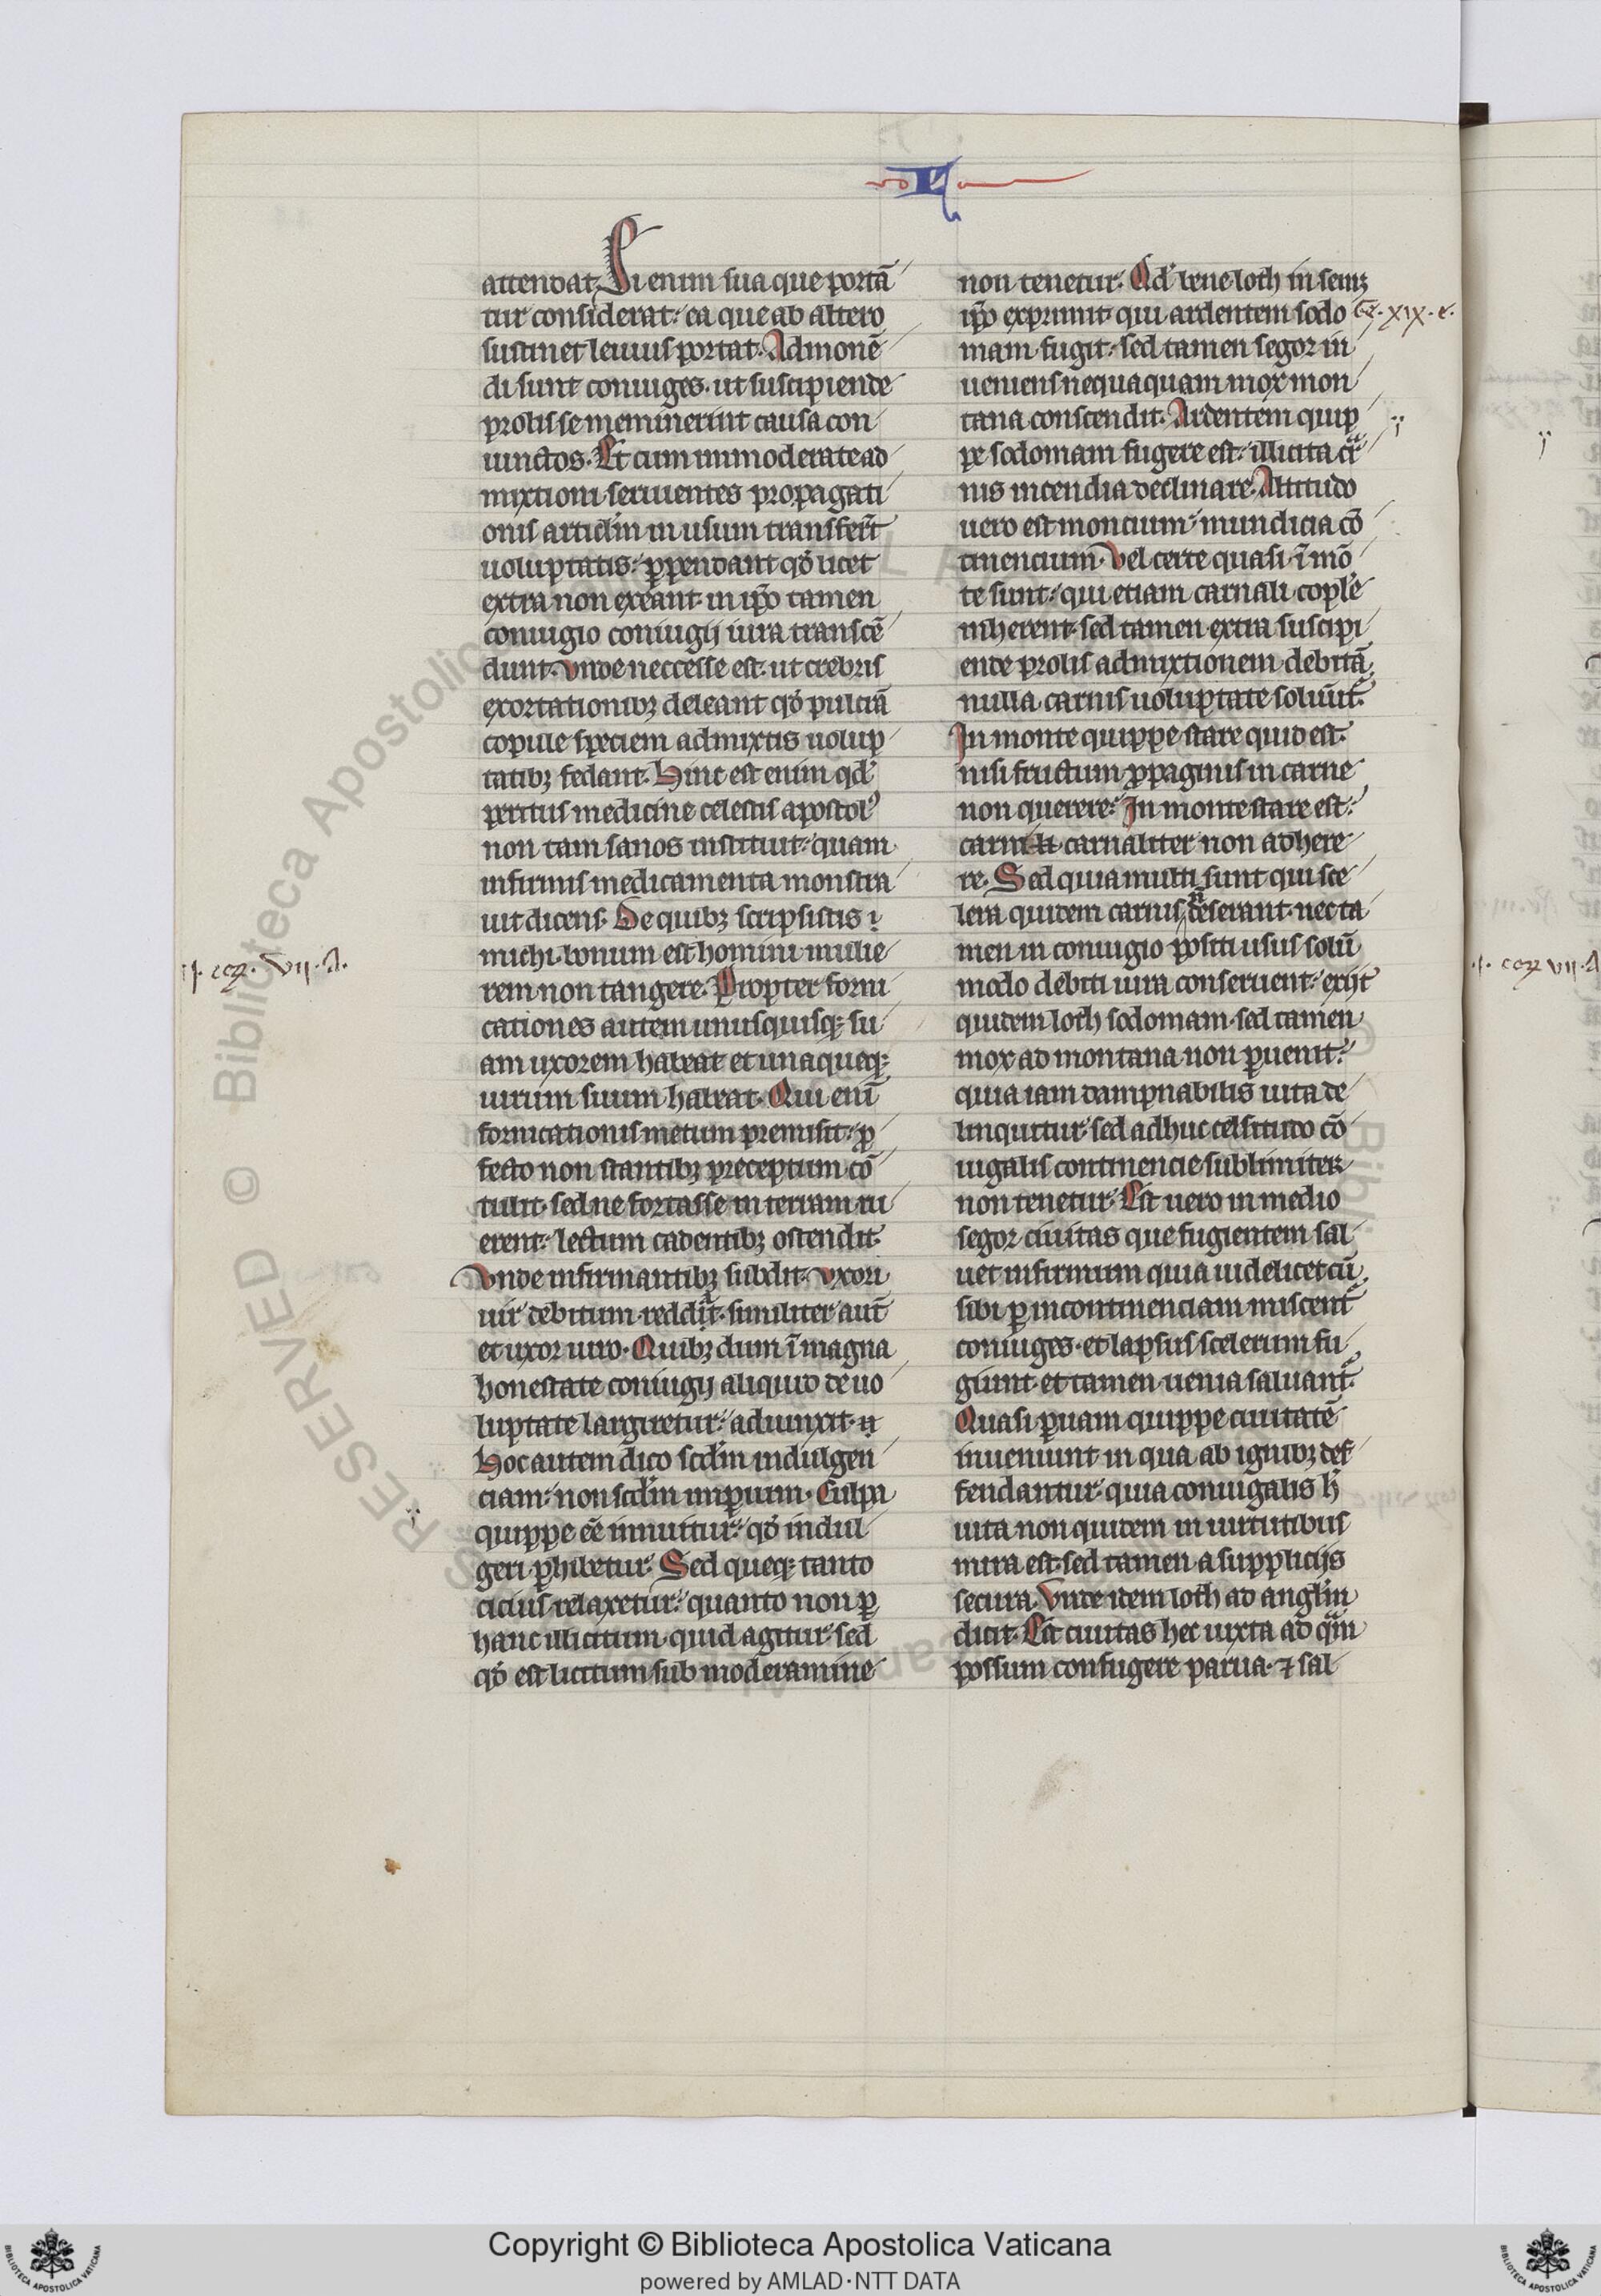 attendat. Si enim sua que portā
tur considerat: ea que ab altero
sustinet leuius portat. Admonē
di sunt coniuges. ut suscipiende
prolis se meminerint causa con
iunctos. Et cum immoderate ad
mixtioni seruientes propagati
onis articl̄m in usum transferūt
uoluptatis: ꝑpendant qd̄ licet
extra non exeant. in ip̄o tamen
coniugio coniugij iura transcē
dunt. Vnde neccesse est. ut crebris
exortationibꝫ deleant qd̄ pulcrā
copule speciem admixtis uolup
tatibꝫ fedant. Hinc est enim qd̄
peritus medicine celestis apostolꝰ
non tam sanos instituit: quam
infirmis medicamenta monstra
uit dicens. De quibꝫ scripsistis
michi. bonum est homini mulie
rem non tangere. Propter forni
cationes autem unusquisqꝫ su
am uxorem habeat et unaqueqꝫ
uirum suum habeat. Qui enī
fornicationis metum premisit: ꝓ
fecto non stantibꝫ preceptum cō
tulit. sed ne fortasse in terram ru
erent: lectum cadentibꝫ ostendit.
Vnde infirmantibꝫ subdit. Vxori
uir debitum reddat. similiter aut̄
et uxor uiro. Quibꝫ dum ī magna
honestate coniugij aliquid de uo
luptate largiretur: adiunxit.
Hoc autem dico scd̄m indulgen
ciam: non scd̄m imꝑium. Culpa
quippe eē innuitur: qd̄ indul
geri ꝑhibetur. Sed queqꝫ tanto
cicius relaxetur: quanto non ꝑ
hanc illicitum quid agitur sed
qd̄ est licitum sub moderamine
non tenetur. Qd̄ bene loth in semꝫ
ip̄o exprimit. qui ardentem sodo
mam fugit: sed tamen segor in
ueniens nequaquam mox mon
tana conscendit. Ardentem quip
pe sodomam fugere est: illicita car
nis incendia declinare. Altitudo
uero est moncium: mundicia cō
tinencium. Vel certe quasi ī mō
te sunt: qui etiam carnali copl̄e
inherent. sed tamen extra suscipi
ende prolis admixtionem debitā
nulla carnis uoluptate soluūt̄.
In monte quippe stare quid est.
nisi fructum ꝓpaginis in carne
non querere: In monte stare est:
carni carnaliter non adhere
re. Sed quia multi sunt qui sce
lera quidem carnis deserant. nec ta
men in coniugio positi usus solū
modo debiti iura conseruent: exijt
quidem loth sodomam. sed tamen
mox ad montana non ꝑuenit:
quia iam dampnabilis uita de
linquitur sed adhuc celsitudo cō
iugalis continencie sublimiter
non tenetur. Est uero in medio
segor ciuitas que fugientem sal
uet infirmum quia uidelicet cū
sibi ꝑ incontinenciam miscent̄
coniuges. et lapsus scelerum fu
giunt. et tamen uenia saluant̄.
Quasi ꝑuam quippe ciuitatē
inueniunt in qua ab ignibꝫ def
fendantur quia coniugalis h̄
uita non quidem in uirtutibus
mira est. sed tamen a supplicijs
secura. Vnde idem loth ad angl̄m
dicit. Est ciuitas hec iuxta ad quam
possum confugere parua. ⁊ sal
Ge. XIX. e.
.I. cor. VII. A.
.I. cor VII. A
Copyright © Biblioteca Apostolica Vaticana
powered by AMLAD·NTT DATA
BIBLIOTECA APOSTOLICA VATICANA
BIBLIOTECA APOSTOLICA VATICANA
RESERVED © Biblioteca Apostolica